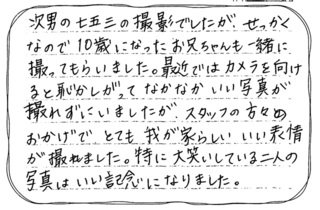 次男の七五三の撮影でしたが、せっかく
なので10歳になったお兄ちゃんも一緒に
撮ってもらいました。最近ではカメラを向け
ると恥かしがって なかなか いい写真が
撮れずにいましたが、スタッフの方々の
おかげで とても 我が家らしい いい表情
が撮れました。特に大笑いしている二人の
写真は いい記念になりました。